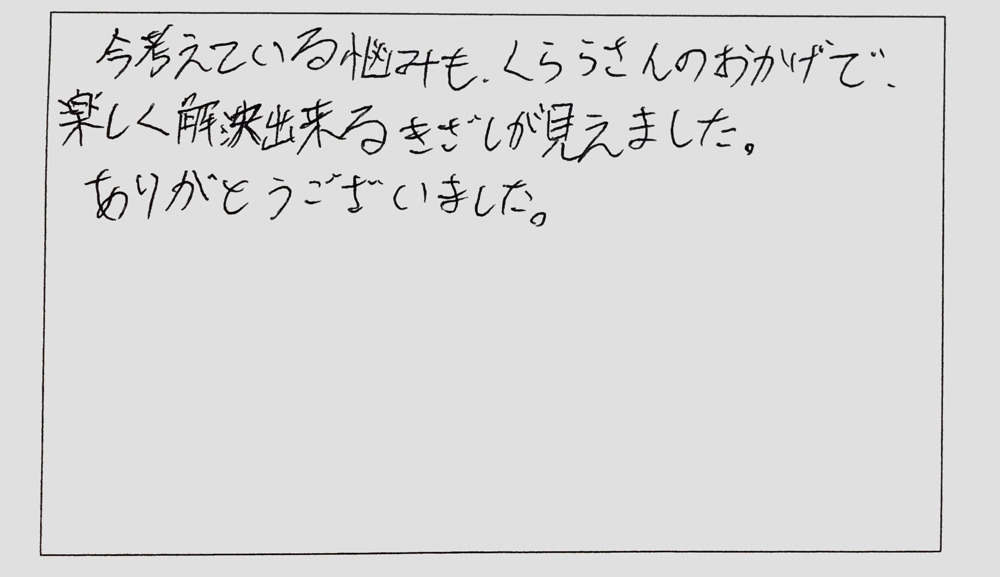 今考えている悩みも、くららさんのおかげで、
楽しく解決出来るきざしが見えました。
ありがとうございました。